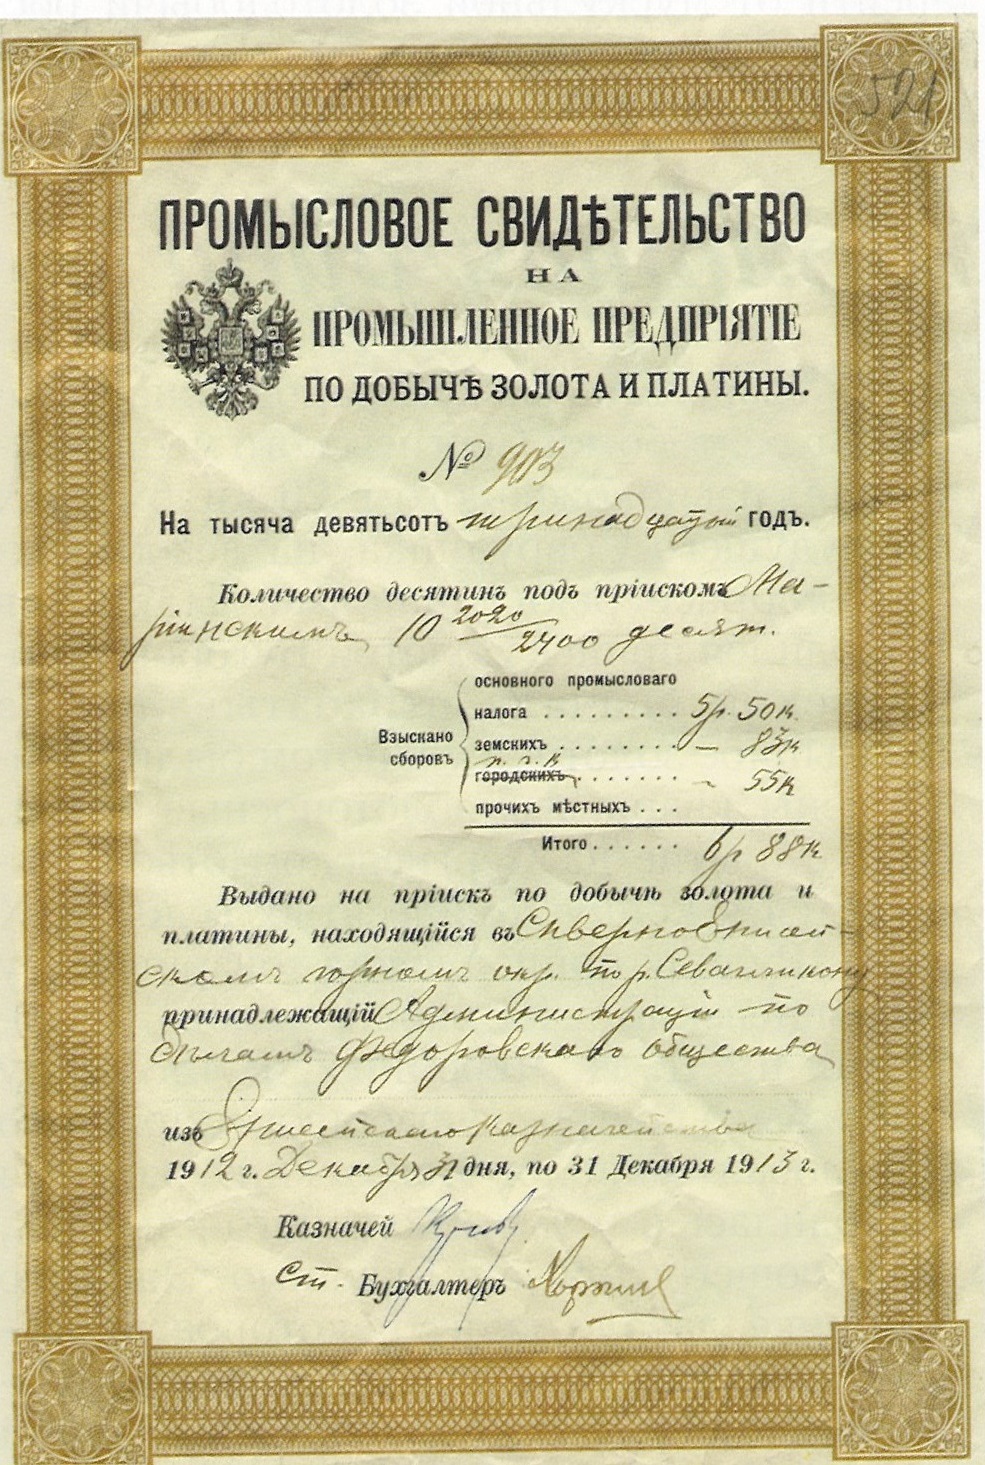 521
ПРОМЫСЛОВОЕ СВИДѢТЕЛЬСТВО
НА
ПРОМЫШЛЕННОЕ ПРЕДПРІЯТІЕ
ПО ДОБЫЧѢ ЗОЛОТА И ПЛАТИНЫ.
№ 903
На тысяча девятьсотъ тринадцатый годъ.
Количество десятинъ подъ пріискомъ Ма-
ріинскимъ 10 2020/2400 десят.
основного промысловаго
налога . . . . . . . . . 5р. 50к
Взыскано сборовъ
земскихъ . . . . . . . . — 83к
п. г. к
городскихъ . . . . . . . - 55к
прочихъ мѣстныхъ . . .
Итого . . . . . . 6р 88к
Выдано на пріискъ по добычѣ золота и
платины, находящійся въ Сѣверно Енисей-
скомъ горномъ окр. по р. Севагликону
принадлежащій Администраціи по
дѣламъ Ѳедоровскаго общества
изъ Енисейскаго казначейства
1912 г. Декабря 31 дня, по 31 Декабря 1913 г.
Казначей
Ст. Бухгалтеръ